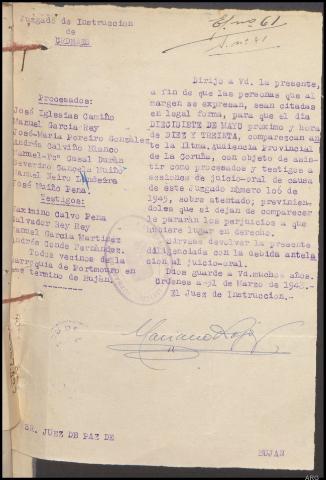 Juzgado de Instruccion
de
ORDENES
Dirijo a Vd. la presente,
a fin de que las personas que al
margen se expresan, sean citadas
en legal forma, para que el dia
DIECISIETE DE MAYO próximo y hora
de DIEZ Y TREINTA, comparezcan an-
te la Iltma. Audiencia Provincial
de la Coruña, con objeto de asis-
tir como procesados y testigos a
sesiones de juicio-oral de causa
de este Juzgado número 106 de
1945, sobre atentado; previnien-
doles que si dejan de comparecer
le pararán los perjuicios a que
hubiere lugar en derecho.
Sirvase devolver la presente
diligenciada con la debida antela
cion al juicio-oral.
Dios guarde a Vd. muchos años.
Ordenes a 31 de Marzo de 1948.-
El Juez de Instruccion.
Procesados:
José Iglesias Camiño
Manuel Garcia Rey
José-Maria Pereiro Gonzalez
Andrés Calviño Blanco
Manuel-Fco Casal Durán
Severino Sancela Muiño
Manuel Neira
José Muiño Pena
Testigos:
Maximino Calvo Pena
Salvador Rey Rey
Manuel Garcia Martinez
Andrés Conde Fernandez.
Todos vecinos de la
parroquia de Portomouro en
ese termino de Buján.
Mariano Rojo
SR. JUEZ DE PAZ DE
BUJAN